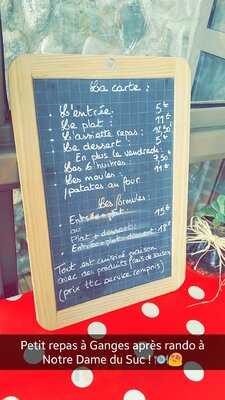 La carte :
L'entrée. 5€
Le plat : 11€
L'assiette repas : 12,50€
Le dessert : 5€
En plus le vendredi :
Les 6 huîtres 7,50
Les moules : 11€
/patates au four
Les formules :
Entrée + plat 15€
ou
Plat + dessert
Entrée + plat + dessert - 18€
Tout est cuisiné maison
avec des produits frais de saison
(prix ttc service compris)
Petit repas à Ganges après rando à
Notre Dame du Suc ! 🍽😋